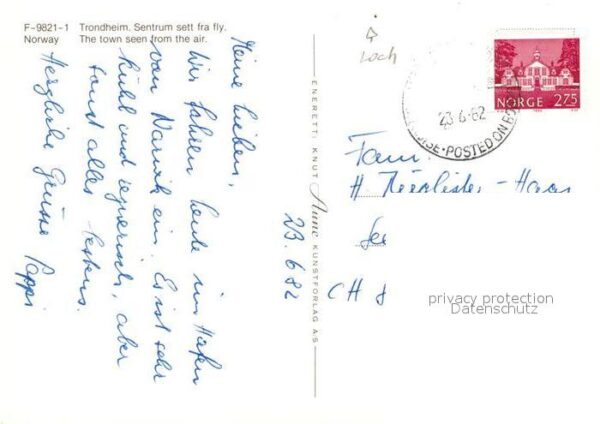 F-9821-1 Trondheim. Sentrum sett fra fly.
Norway The town seen from the air.
Meine Lieben,
Wir fahren heute im Hafen
von Narvik ein. Es ist sehr
kühl und regnerisch, aber
sonst alles bestens.
Herzliche Grüsse Pappi
23.6.82
ENERETT: KNUT Aune KUNSTFORLAG A/S
Loch
NORGE 2.75
23-6-82
POSTED ON BO
Fam.
H
See
CH 8
privacy protection
Datenschutz